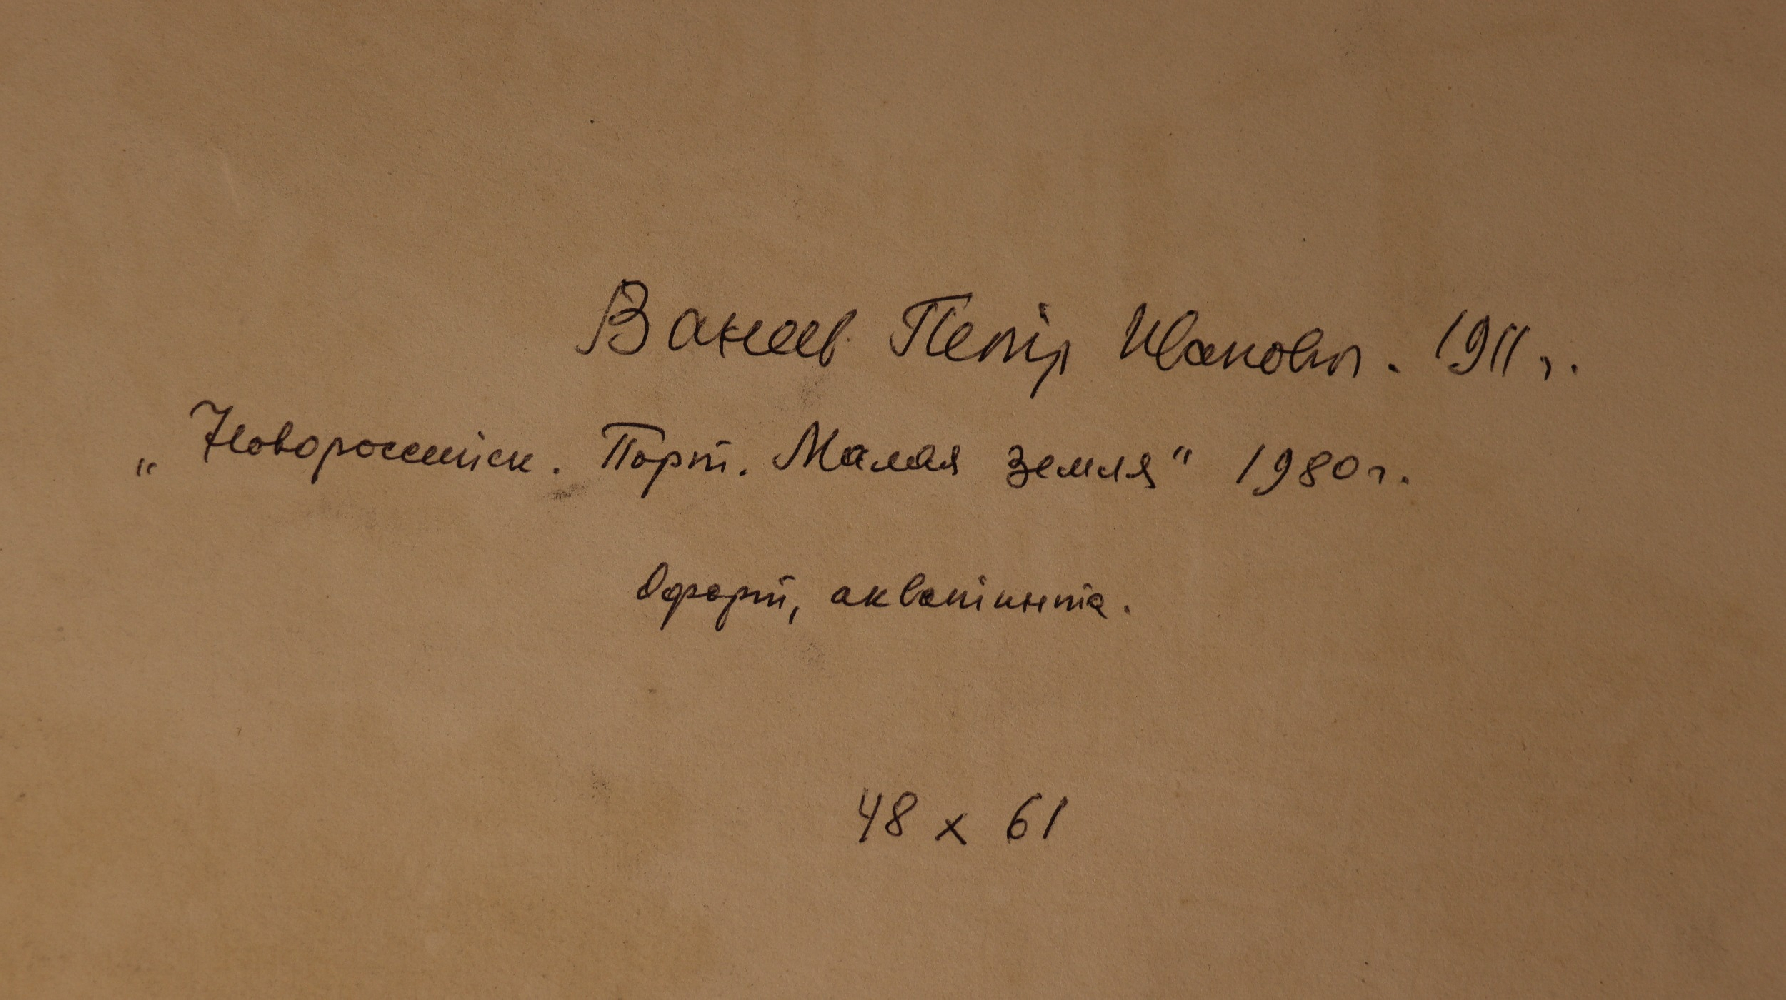 Ванеев Петр Иванович. 1911 г.
„Новороссийск. Порт. Малая земля" 1980 г.
Офорт, акватинта.
48 х 61